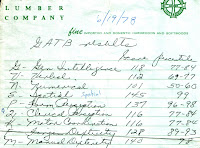 LUMBER
COMPANY
6/19/78
fine
GATB results
Score Percentile
G - Gen Intelligence 118 77-84
V - Verbal 112 69-77
N - Numerical 101 50-60
S - Spatial 145 99
P - Form Perception 137 96-98
Q - Clerical Perception 116 77-84
K - Motor Coordination 116 77-84
F - Finger Dexterity 128 89-93
M - Manual Dexterity 140 98